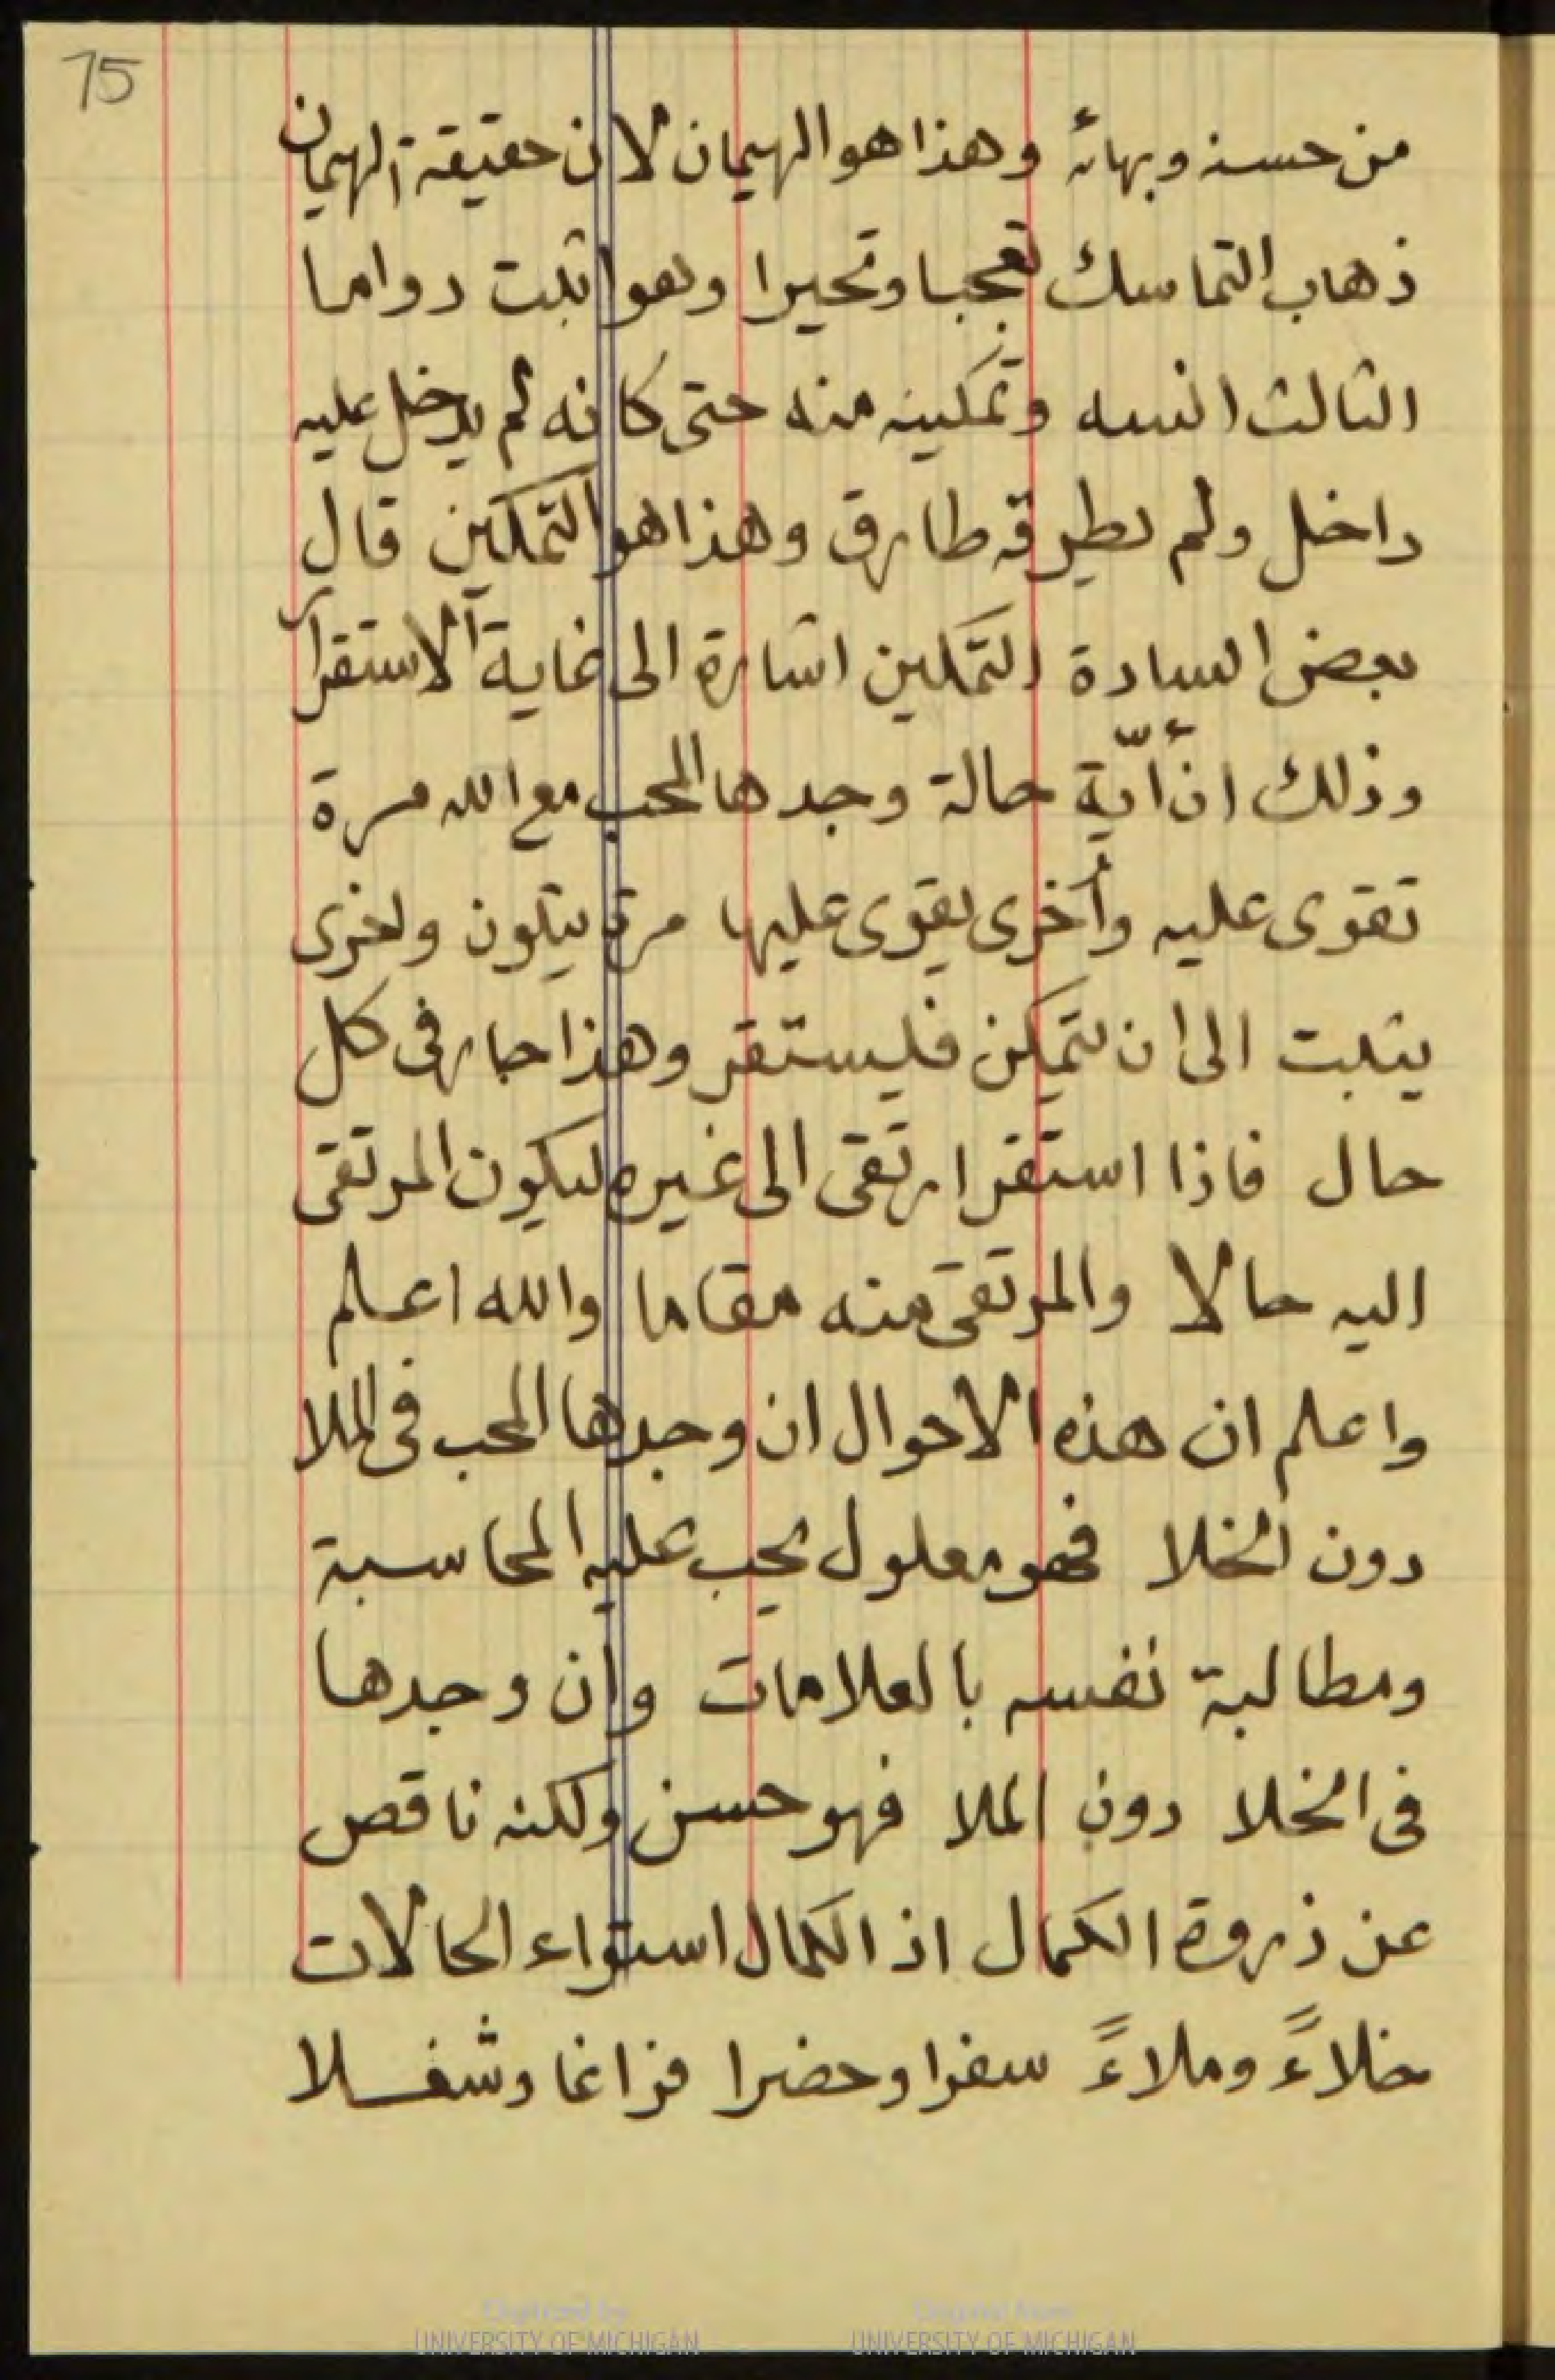 75
من حسنه وبهائه وهذا هو الهيمان لان حقيقة الهيمان
ذهاب التماسك تعجبا وتحيرا وهو اثبت دواما
الثالث انسه وتمكينه منه حتى كانه لم يدخل عليه
داخل ولم يطرقه طارق وهذا هو التمكين قال
بعض السادة التمكين اشارة الى غاية الاستقرار
وذلك ان أيّة حالة وجدها المحب مع الله مرة
تقوى عليه وأخرى يقوى عليها مرة يتلون واخرى
يثبت الى ان يتمكن فليستقر وهذا جار فى كل
حال فاذا استقر ارتقى الى غيره ليكون المرتقى
اليه حالا والمرتقى منه مقاما والله اعلم
واعلم ان هذه الاحوال ان وجدها المحب فى الملا
دون الخلا فهو معلول يجب عليه المحاسبة
ومطالبة نفسه بالعلامات وان وجدها
فى الخلا دون الملا فهو حسن ولكنه ناقص
عن ذروة الكمال اذ الكمال استواء الحالات
خلاءً وملاءً سفرا وحضرا فراغا وشغلا
Digitized by
UNIVERSITY OF MICHIGAN
Original from
UNIVERSITY OF MICHIGAN